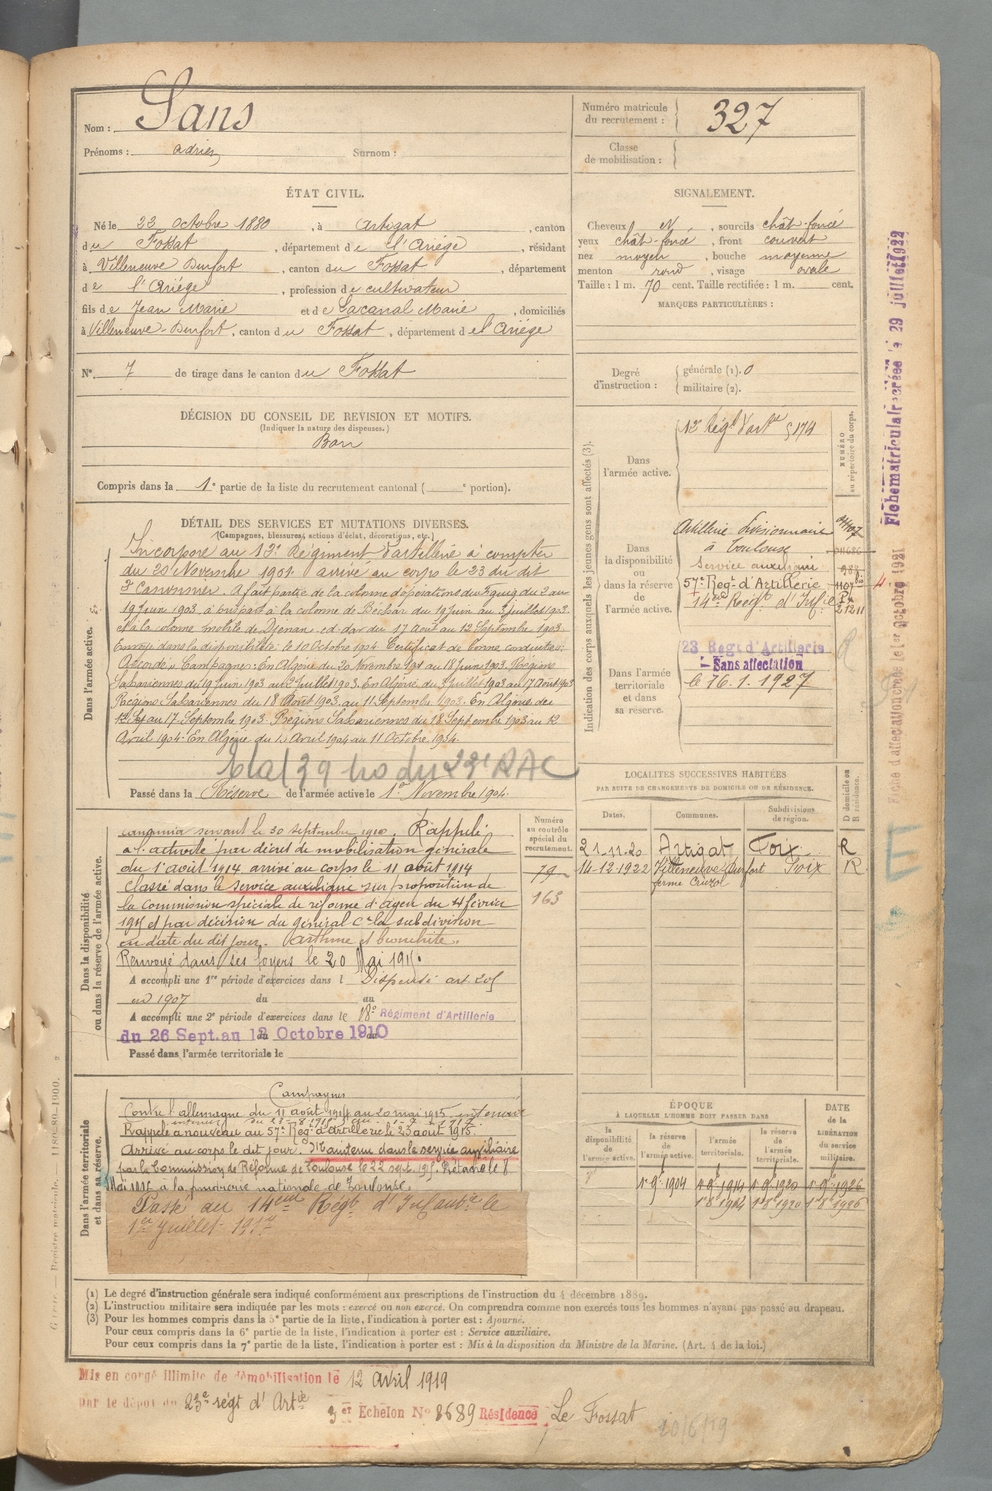 Nom : Sans
Prénoms : adrien Surnom :
Numéro matricule du recrutement : 327
Classe de mobilisation :
ÉTAT CIVIL.
Né le 22 octobre 1880, à Artigat, canton
du Fossat, département de l'Ariège, résidant
à Villeneuve Durfort, canton du Fossat, département
de l'Ariège, profession de cultivateur
fils de Jean Marie et de Lacanal Marie, domiciliés
à Villeneuve-Durfort, canton du Fossat, département de l'Ariège
N° 7 de tirage dans le canton du Fossat
SIGNALEMENT.
Cheveux N, sourcils chât-foncé
yeux chât-foncé, front couvert
nez moyen, bouche moyenne
menton rond, visage ovale
Taille : 1 m. 70 cent. Taille rectifiée : 1 m. cent.
MARQUES PARTICULIÈRES :
Degré d'instruction : générale (1). 0
militaire (2).
DÉCISION DU CONSEIL DE REVISION ET MOTIFS.
(Indiquer la nature des dispenses.)
Bon
Compris dans la 1e partie de la liste du recrutement cantonal ( e portion).
DÉTAIL DES SERVICES ET MUTATIONS DIVERSES.
(Campagnes, blessures, actions d'éclat, décorations, etc.)
Dans l'armée active.
Incorporé au 12e Régiment d'artillerie à compter
du 20 Novembre 1901 arrivé au corps le 23 du dit
2e Canonnier. A fait partie de la colonne d'opérations du Figuig du 2 au
19 juin 1903, à la colonne de Béchar du 19 Juin au 3 juillet 1903
et à la colonne mobile de Djenan-ed-dar du 17 Août au 12 Septembre 1903
Envoyé dans la disponibilité le 10 Octobre 1904 Certificat de bonne conduite
Accordé. Campagnes: En Algérie du 20 Novembre 1901 au 18 Juin 1903. Régions
Sahariennes du 19 Juin 1903 au 2 Juillet 1903. En Algérie du 3 Juillet 1903 au 17 Août 1903
Régions Sahariennes du 18 Août 1903 au 11 Septembre 1903. En Algérie du
12 Sept au 17 Septembre 1903. Régions Sahariennes du 18 Septembre 1903 au 12
Avril 1904. En Algérie du Avril 1904 au 11 Octobre 1904.
Passé dans la Réserve de l'armée active le 1er Novembre 1904.
Indication des corps auxquels les jeunes gens sont affectés (3).
NUMÉRO au répertoire du corps.
Dans l'armée active.
12e Régt d'artie 5174
Dans la disponibilité ou dans la réserve de l'armée active.
Artillerie Divisionnaire
à Toulouse
Service auxiliaire
57e Regt d'Artillerie
14e Regt d'Inf.
Dans l'armée territoriale et dans sa réserve.
23 Regt d'Artillerie
Sans affectation
le 16.1.1927
Fiche matriculaire créée le 29 juillet 1922
Fiche d'affectation créée le 1er Octobre 1921
LOCALITÉS SUCCESSIVES HABITÉES
PAR SUITE DE CHANGEMENTS DE DOMICILE OU DE RÉSIDENCE.
Dates. Communes. Subdivisions de région. D domicile ou R résidence.
21-11-20 Artigat Foix R
14-12-1922 Villeneuve Durfort Foix R
ferme Cruzol
Dans la disponibilité ou dans la réserve de l'armée active.
Numéro au contrôle spécial du recrutement.
79
163
servant le 30 septembre 1910. Rappelé
à l'activité par décret de mobilisation générale
du 1er août 1914 arrivé au corps le 11 août 1914
Classé dans le service auxiliaire sur proposition de
la Commission spéciale de réforme d'Agen du 4 février
1915 et par décision du général Ct la subdivision
en date du dit jour. "asthme et bronchite".
Renvoyé dans ses foyers le 20 Mai 1915.
A accompli une 1re période d'exercices dans l Dispensé art. 205
en 1907 du au
A accompli une 2e période d'exercices dans le 18e Régiment d'Artillerie
du 26 Sept. au 12 Octobre 1910
Passé dans l'armée territoriale le
Dans l'armée territoriale et dans sa réserve.
Campagnes
Contre l'allemagne du 11 août 1914 au 20 mai 1915. intérieur
Rappelé à nouveau au 57e Regt d'Artillerie le 23 août 1915.
Arrivé au corps le dit jour. Maintenu dans le service auxiliaire
par la Commission de Réforme de Toulouse le 22 sept. 1915. Détaché le 8
à la poudrerie nationale de Toulouse.
Passé au 14ème Régt d'Infantie le
1er Juillet 1917
ÉPOQUE
À LAQUELLE L'HOMME DOIT PASSER DANS
DATE de la LIBÉRATION du service militaire.
la disponibilité de l'armée active. la réserve de l'armée active. l'armée territoriale. la réserve de l'armée territoriale.
1r 9b 1904 1r 9b 1914 1r 9b 1920 1r 9b 1926
1r 8b 1914 1r 8b 1920 1r 8b 1926
(1) Le degré d'instruction générale sera indiqué conformément aux prescriptions de l'instruction du 4 décembre 1889.
(2) L'instruction militaire sera indiquée par les mots : exercé ou non exercé. On comprendra comme non exercés tous les hommes n'ayant pas passé au drapeau.
(3) Pour les hommes compris dans la 5e partie de la liste, l'indication à porter est : Ajourné.
Pour ceux compris dans la 6e partie de la liste, l'indication à porter est : Service auxiliaire.
Pour ceux compris dans la 7e partie de la liste, l'indication à porter est : Mis à la disposition du Ministre de la Marine. (Art. 4 de la loi.)
Mis en congé illimité de démobilisation le 12 avril 1919
Par le dépôt du 23e régt d'Artie
3er Echelon No 8689 Résidence Le Fossat
10/6/19